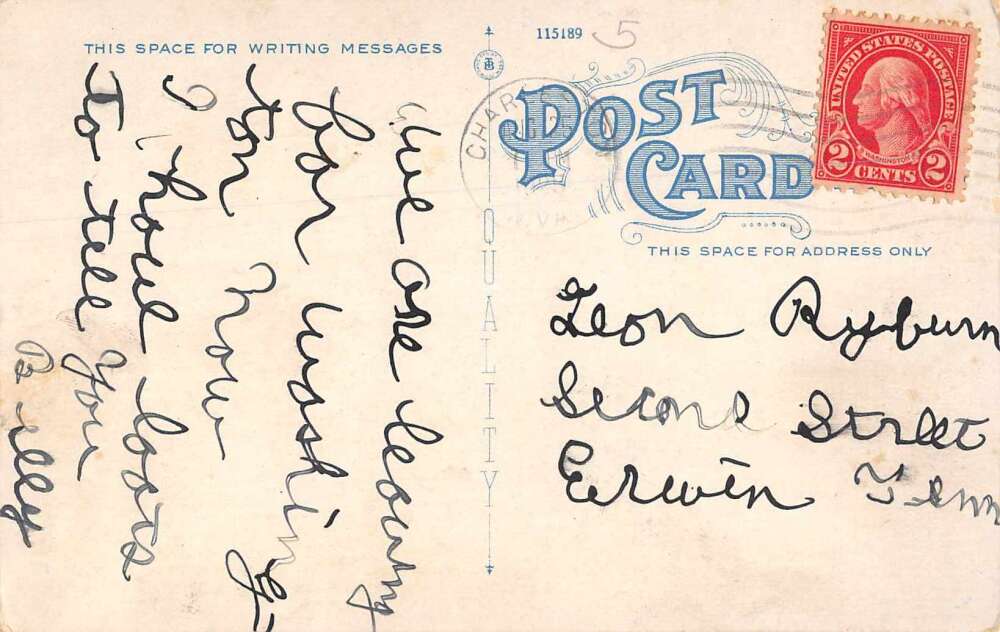 THIS SPACE FOR WRITING MESSAGES
We are leaving
for washing-
ton now
I have lots
to tell you
Billy
115189
5
CHAR
VA
POST
CARD
UNITED STATES POSTAGE
WASHINGTON
2 CENTS 2
THIS SPACE FOR ADDRESS ONLY
QUALITY
Leon Ryburn
Second Street
Erwin Tenn